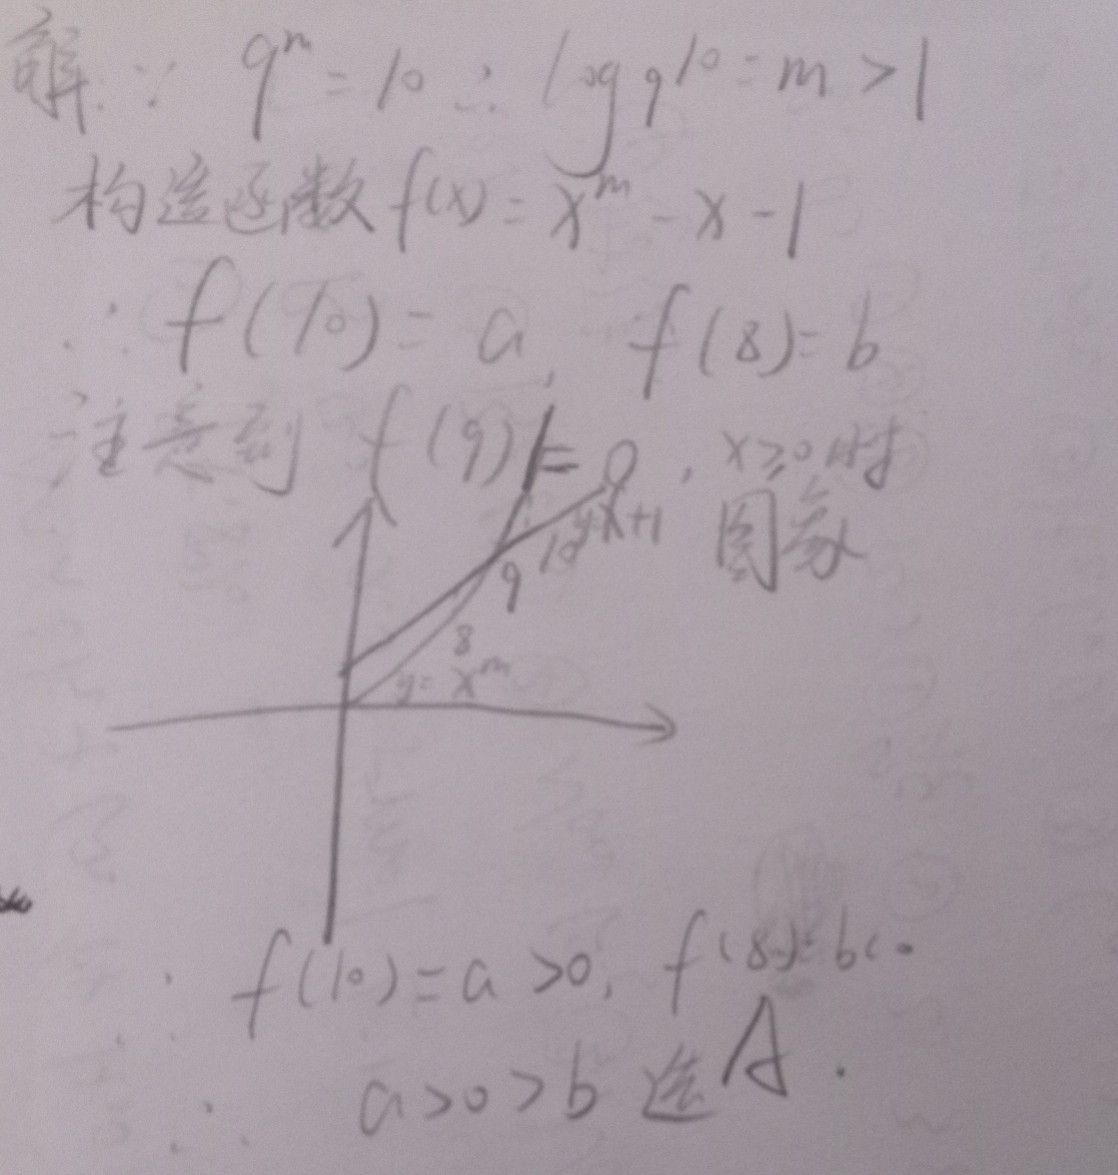 解:∵ 9^m = 10 ∴ log₉10 = m > 1
构造函数 f(x) = x^m - x - 1
∴ f(10) = a, f(8) = b
注意到 f(9) = 0, x≥0时
图象
y=x+1
10
9
8
y = x^m
∴ f(10) = a > 0, f(8) = b < 0
∴ a > 0 > b 选 A.